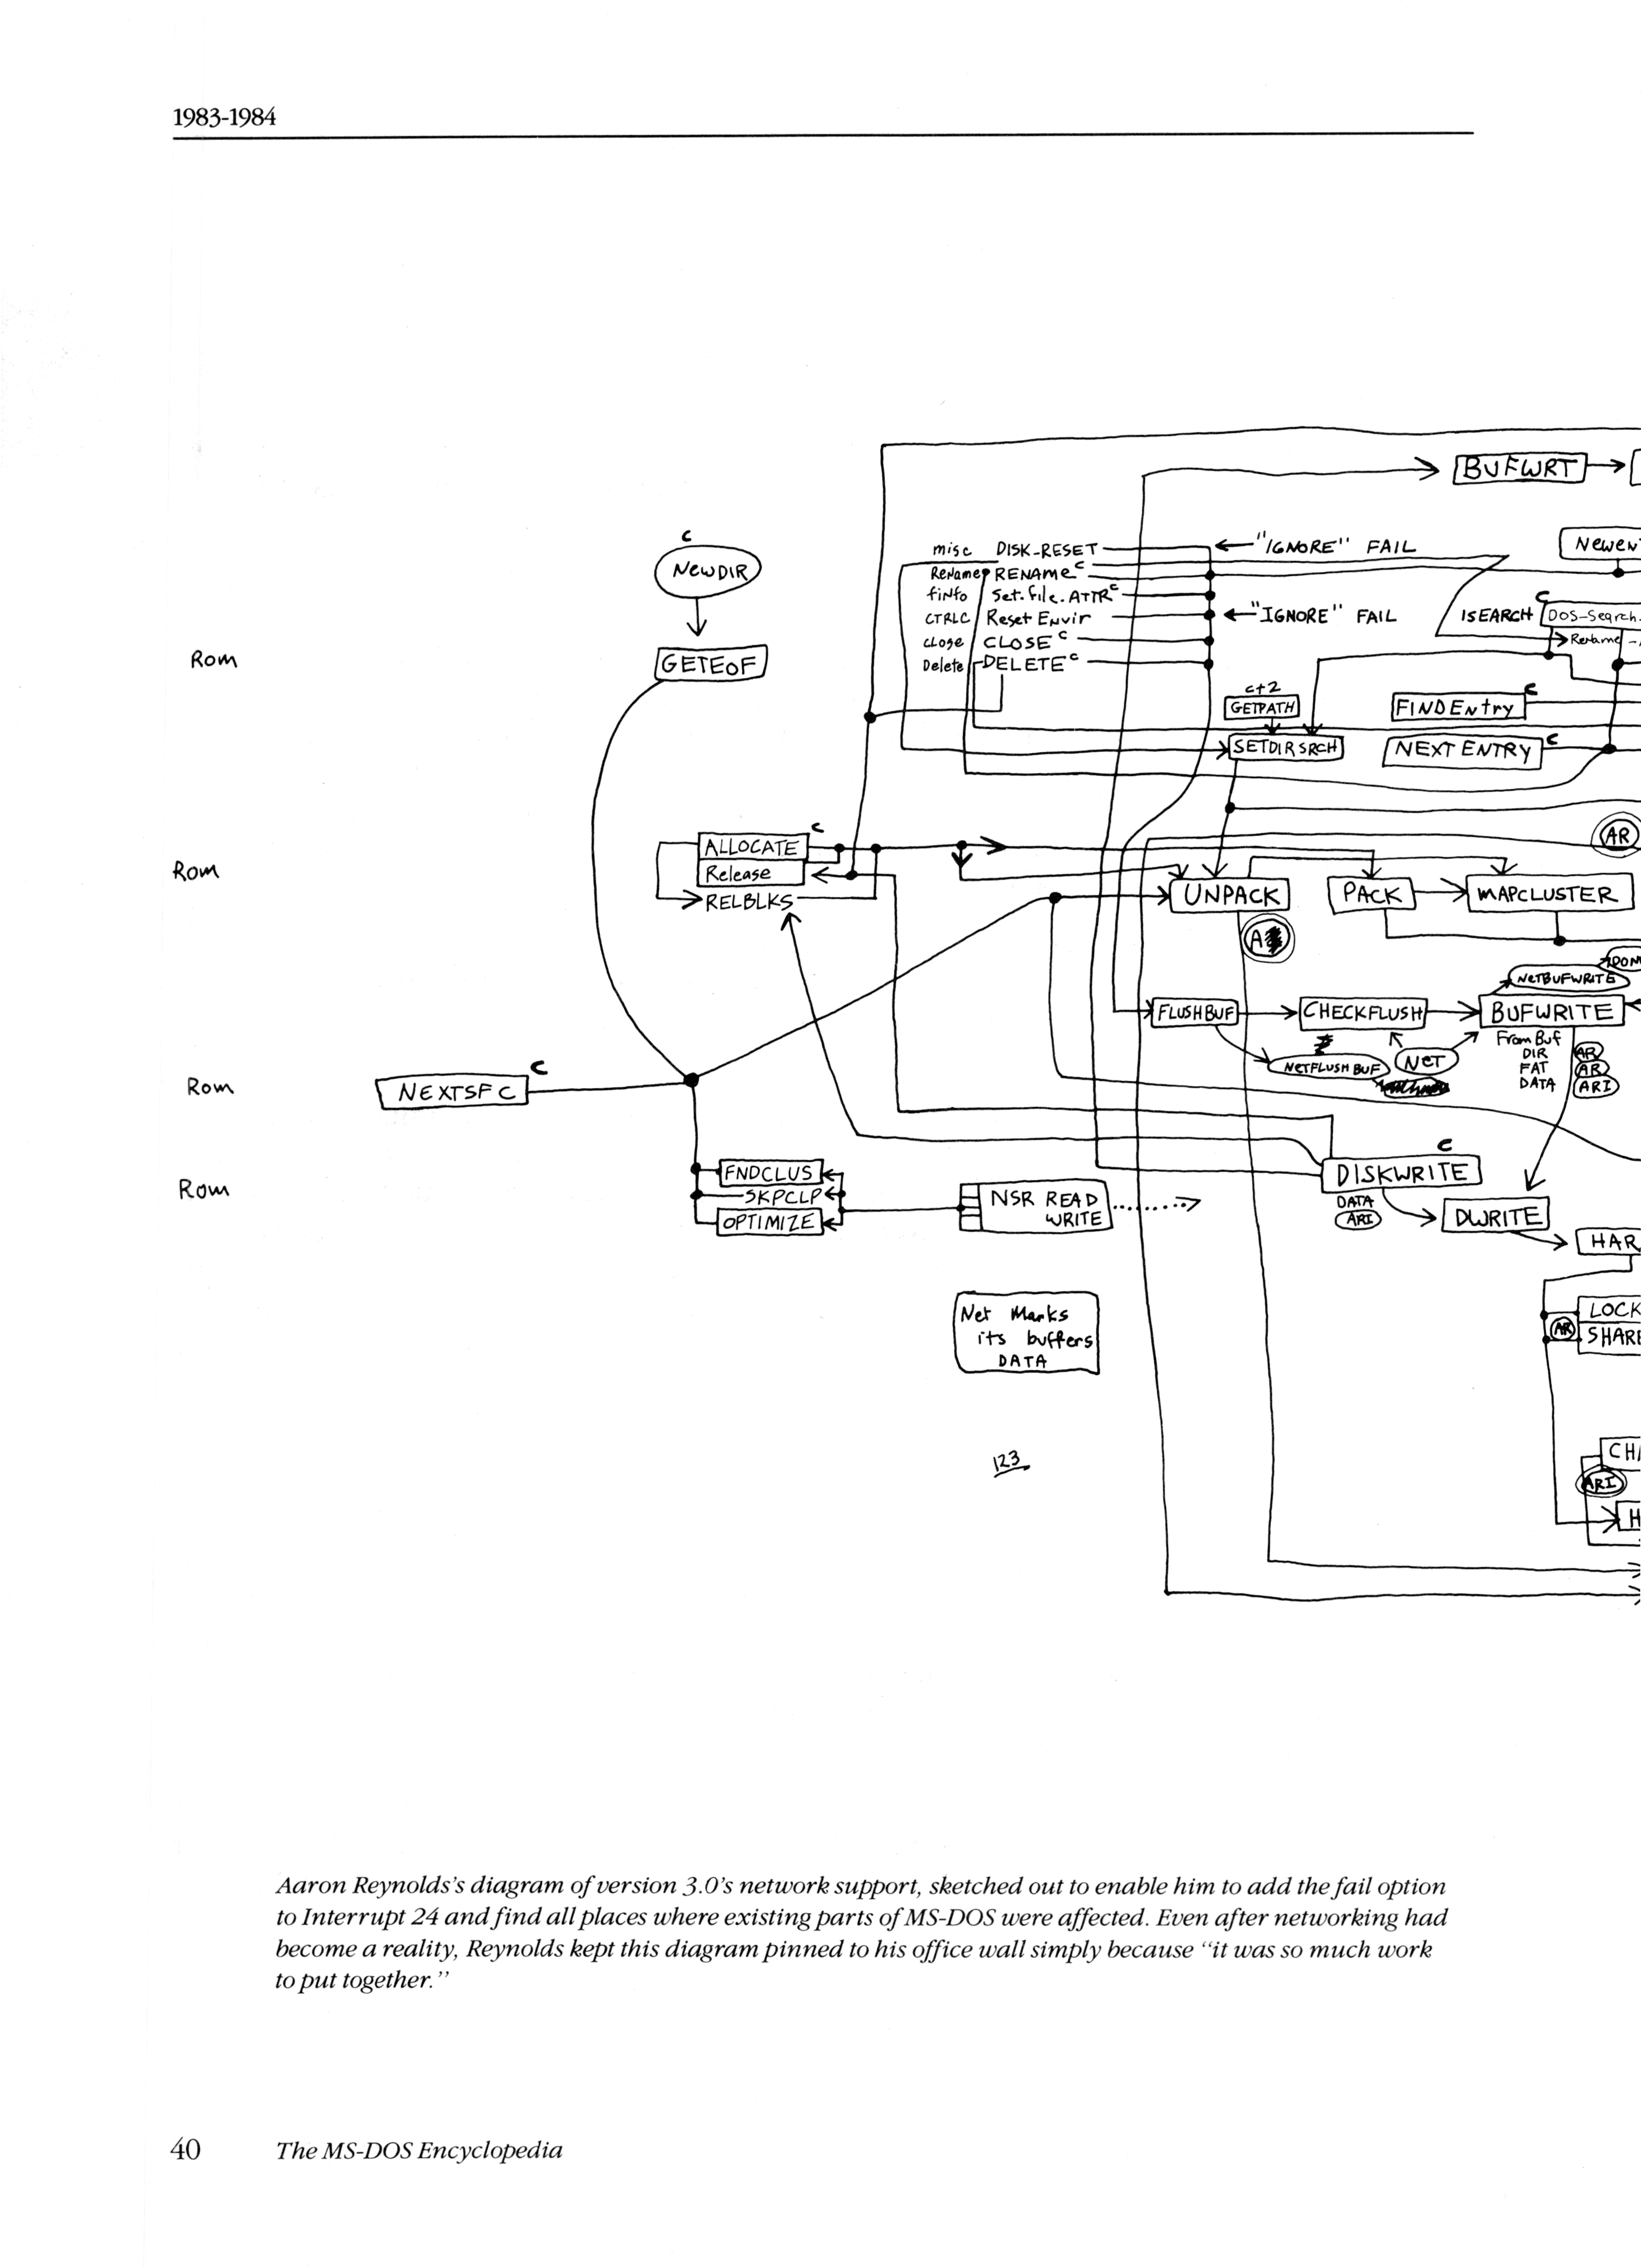 1983-1984
BUFWRT
C
NewDIR
misc DISK-RESET
"IGNORE" FAIL
ReName RENAMe C
fiNfo Set.file.ATTR C
CTRLC Reset Envir
"IGNORE" FAIL
cLose CLOSE C
Delete DELETE C
C
ISEARCH DOS-Search
Rename
Rom
GETEoF
c+2
GETPATH
SETDIRSRCH
C
FINDEntry
NEXT ENTRY C
AR
Rom
C
ALLOCATE
Release
RELBLKS
UNPACK
PACK
MAPCLUSTER
A
NETBUFWRITE
FLUSHBUF
CHECKFLUSH
BUFWRITE
NETFLUSHBUF
NET
From Buf
DIR AR
FAT AR
DATA ARI
Rom
NEXTSFC C
Rom
FNDCLUS
SKPCLP
OPTIMIZE
NSR READ
WRITE
C
DISKWRITE
DATA
ARI
DWRITE
HAR
Net Marks
its buffers
DATA
LOCK
AR SHARE
123
CH
ARI
H
Aaron Reynolds's diagram of version 3.0's network support, sketched out to enable him to add the fail option
to Interrupt 24 and find all places where existing parts of MS-DOS were affected. Even after networking had
become a reality, Reynolds kept this diagram pinned to his office wall simply because “it was so much work
to put together.”
40 The MS-DOS Encyclopedia